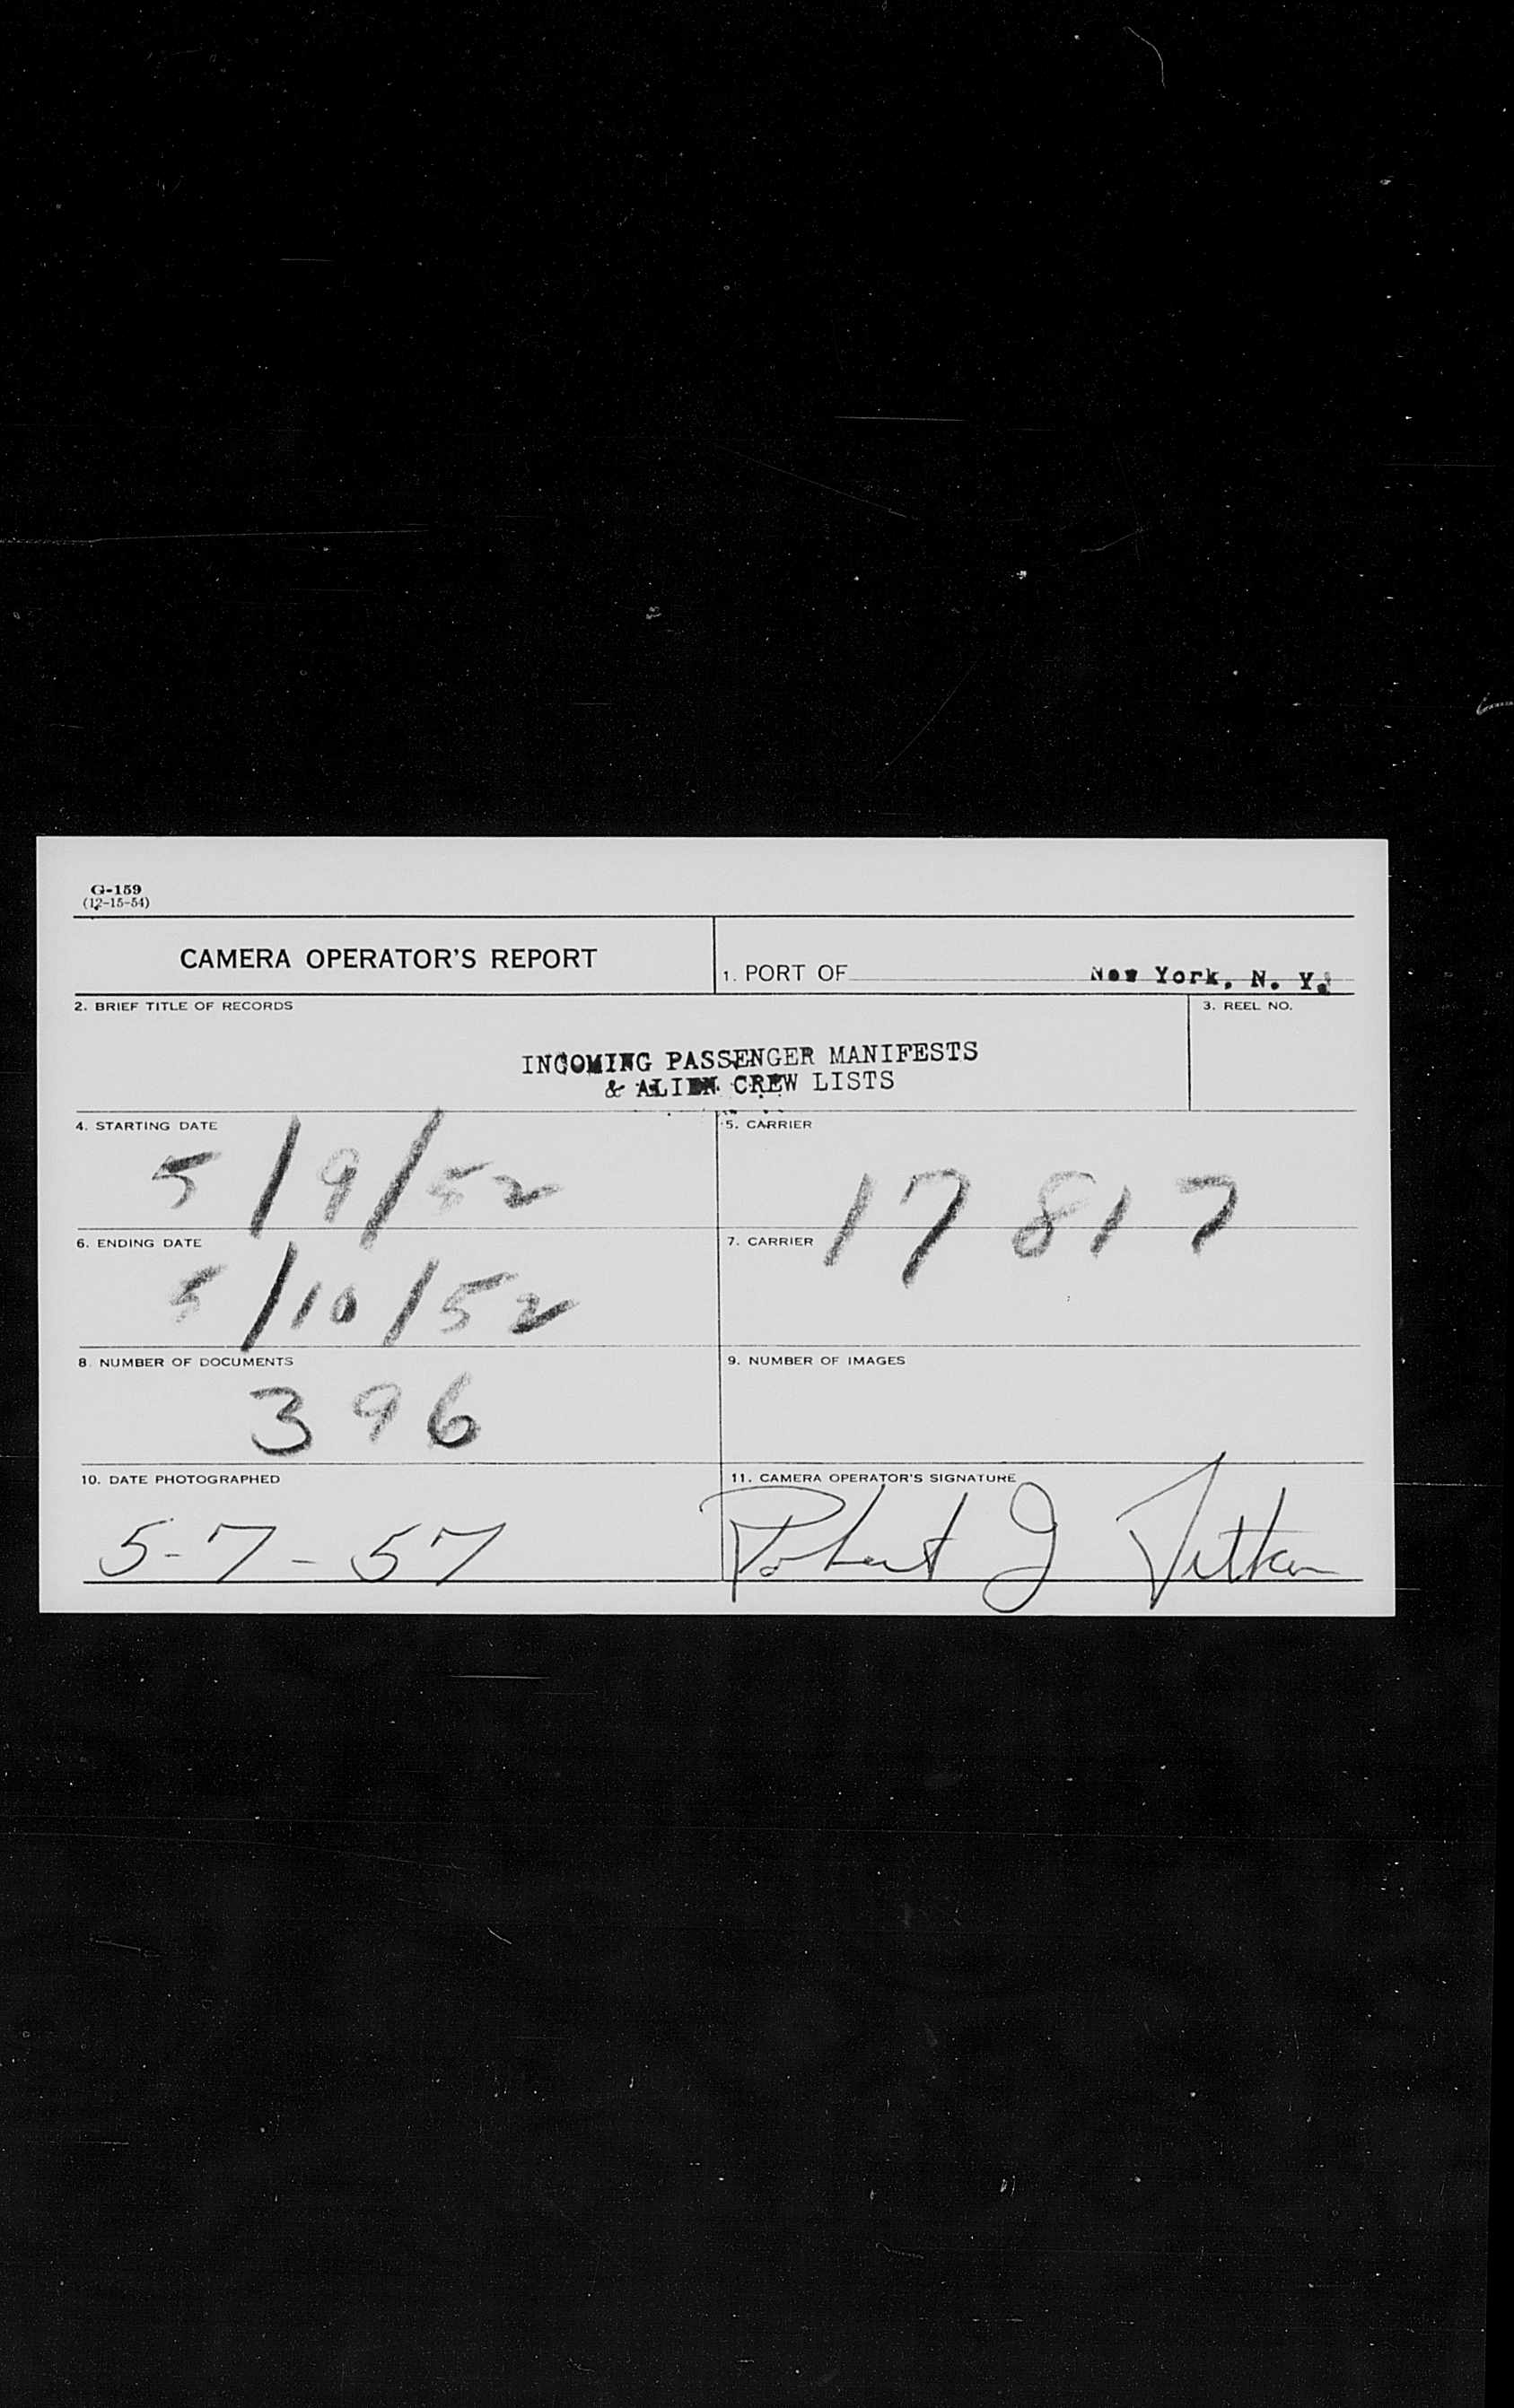 G-159
(12-15-54)
CAMERA OPERATOR'S REPORT
1. PORT OF New York, N. Y.
2. BRIEF TITLE OF RECORDS
3. REEL NO.
INCOMING PASSENGER MANIFESTS
& ALIEN CREW LISTS
4. STARTING DATE
5/9/52
5. CARRIER
17 817
6. ENDING DATE
5/10/52
7. CARRIER
8. NUMBER OF DOCUMENTS
396
9. NUMBER OF IMAGES
10. DATE PHOTOGRAPHED
5-7-57
11. CAMERA OPERATOR'S SIGNATURE
Robert J